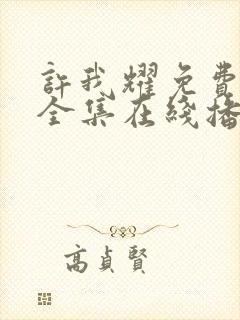 許我耀免費
全集在綫播
高貞賢